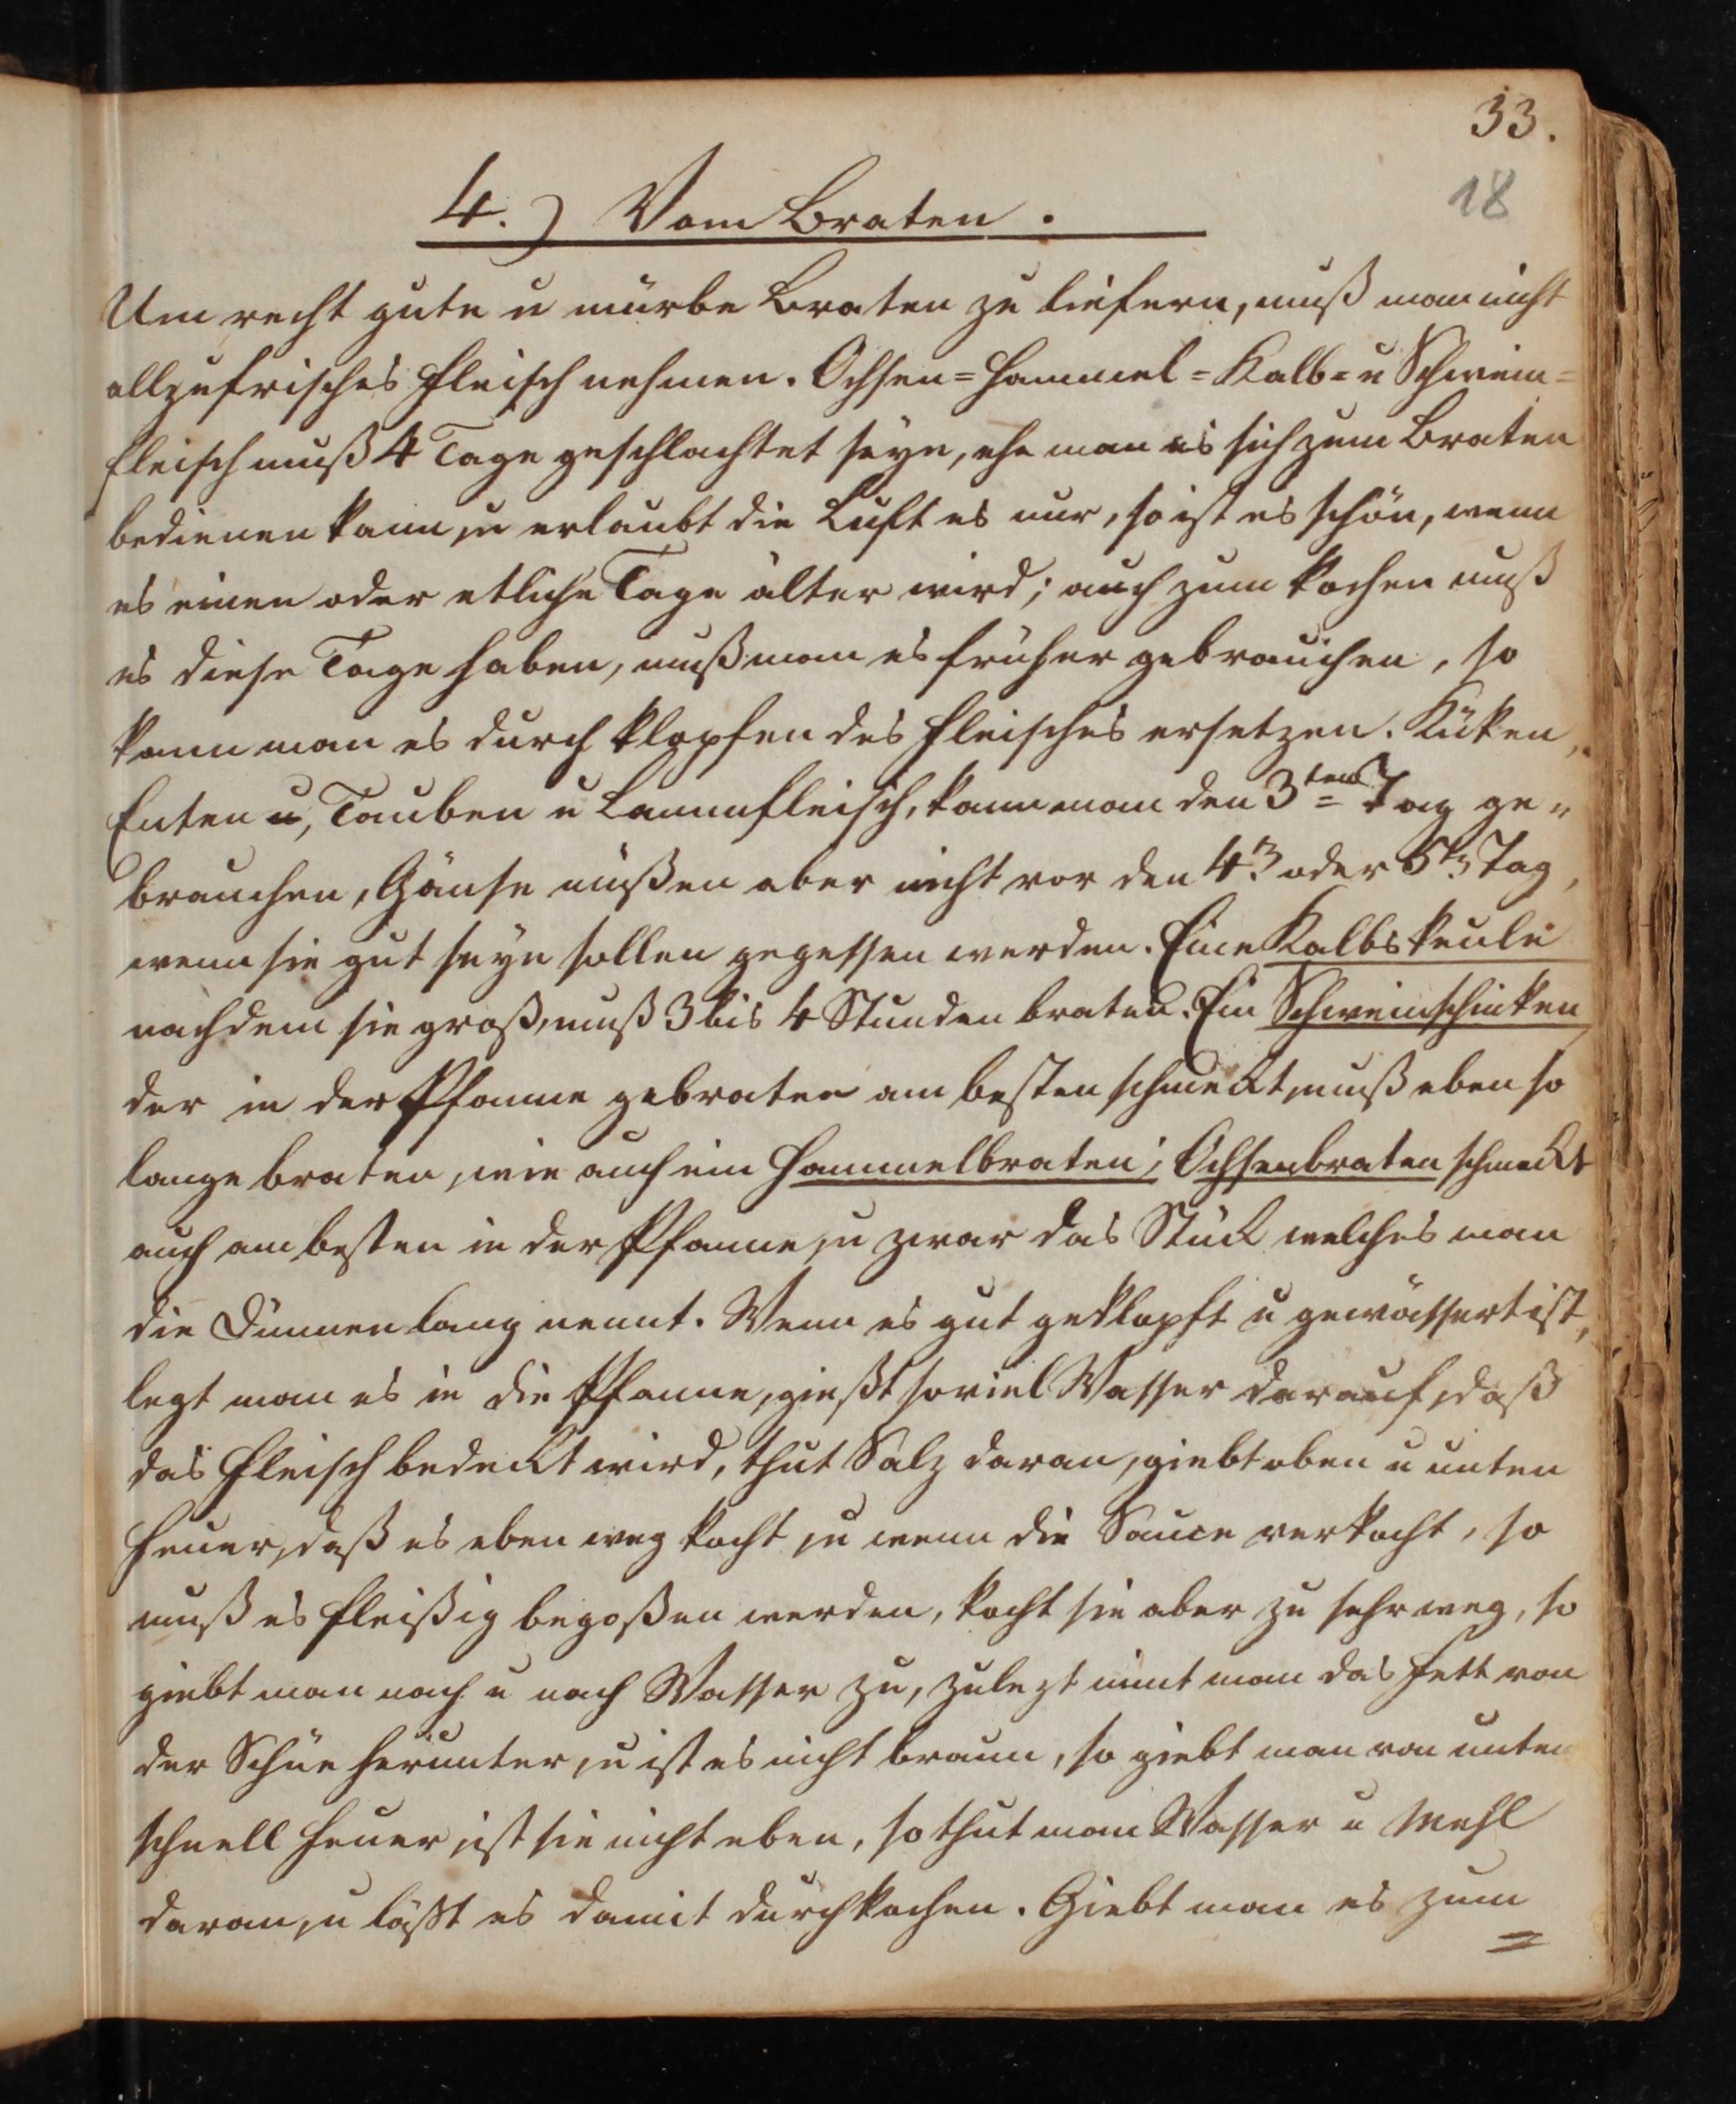 33.
18
4.) Vom Braten.
Um recht gute u mürbe Braten zu liefern, muß man nicht
allzufrisches Fleisch nehmen. Ochsen= Hammel= Kalb= u Schwein=
fleisch muß 4 Tage geschlachtet seyn, ehe man es sich zum Braten
bedienen kann, u erlaubt die Luft es nur, so ist es schön, wenn
es einen oder etliche Tage älter wird; auch zum kochen muß
es diese Tage haben, muß man es früher gebrauchen, so
kann man es durch klopfen des Fleisches ersetzen. Küken,
Enten u, Tauben u Lammfleisch, kann man den 3ten Tag ge„
brauchen, Gänse müßen aber nicht vor den 4t oder 5t Tag,
wenn sie gut seyn sollen gegessen werden. Eine Kalbskeule
nachdem sie groß, muß 3 bis 4 Stunden braten. Ein Schweinschinken
der in der Pfanne gebraten am besten schmeckt, muß eben so
lange braten, wie auch ein Hammelbraten; Ochsenbraten schmeckt
auch am besten in der Pfanne, u zwar das Stück welches man
die Dünnen lang nennt. Wenn es gut geklopft u gewässert ist,
legt man es in die Pfanne, gießt soviel Wasser darauf, daß
das Fleisch bedeckt wird, thut Salz daran, giebt oben u unten
Feuer, daß es eben weg kocht, u wenn die Sauce verkocht, so
muß es fleißig begoßen werden, kocht sie aber zu sehr weg, so
giebt man nach u nach Wasser zu, zulezt nimt man das Fett von
der Schüe herunter, u ist es nicht braun, so giebt man von unten
schnell Feuer, ist sie nicht eben, so thut man Wasser u Mehl
daran, u läßt es damit durchkochen. Giebt man es zum
=